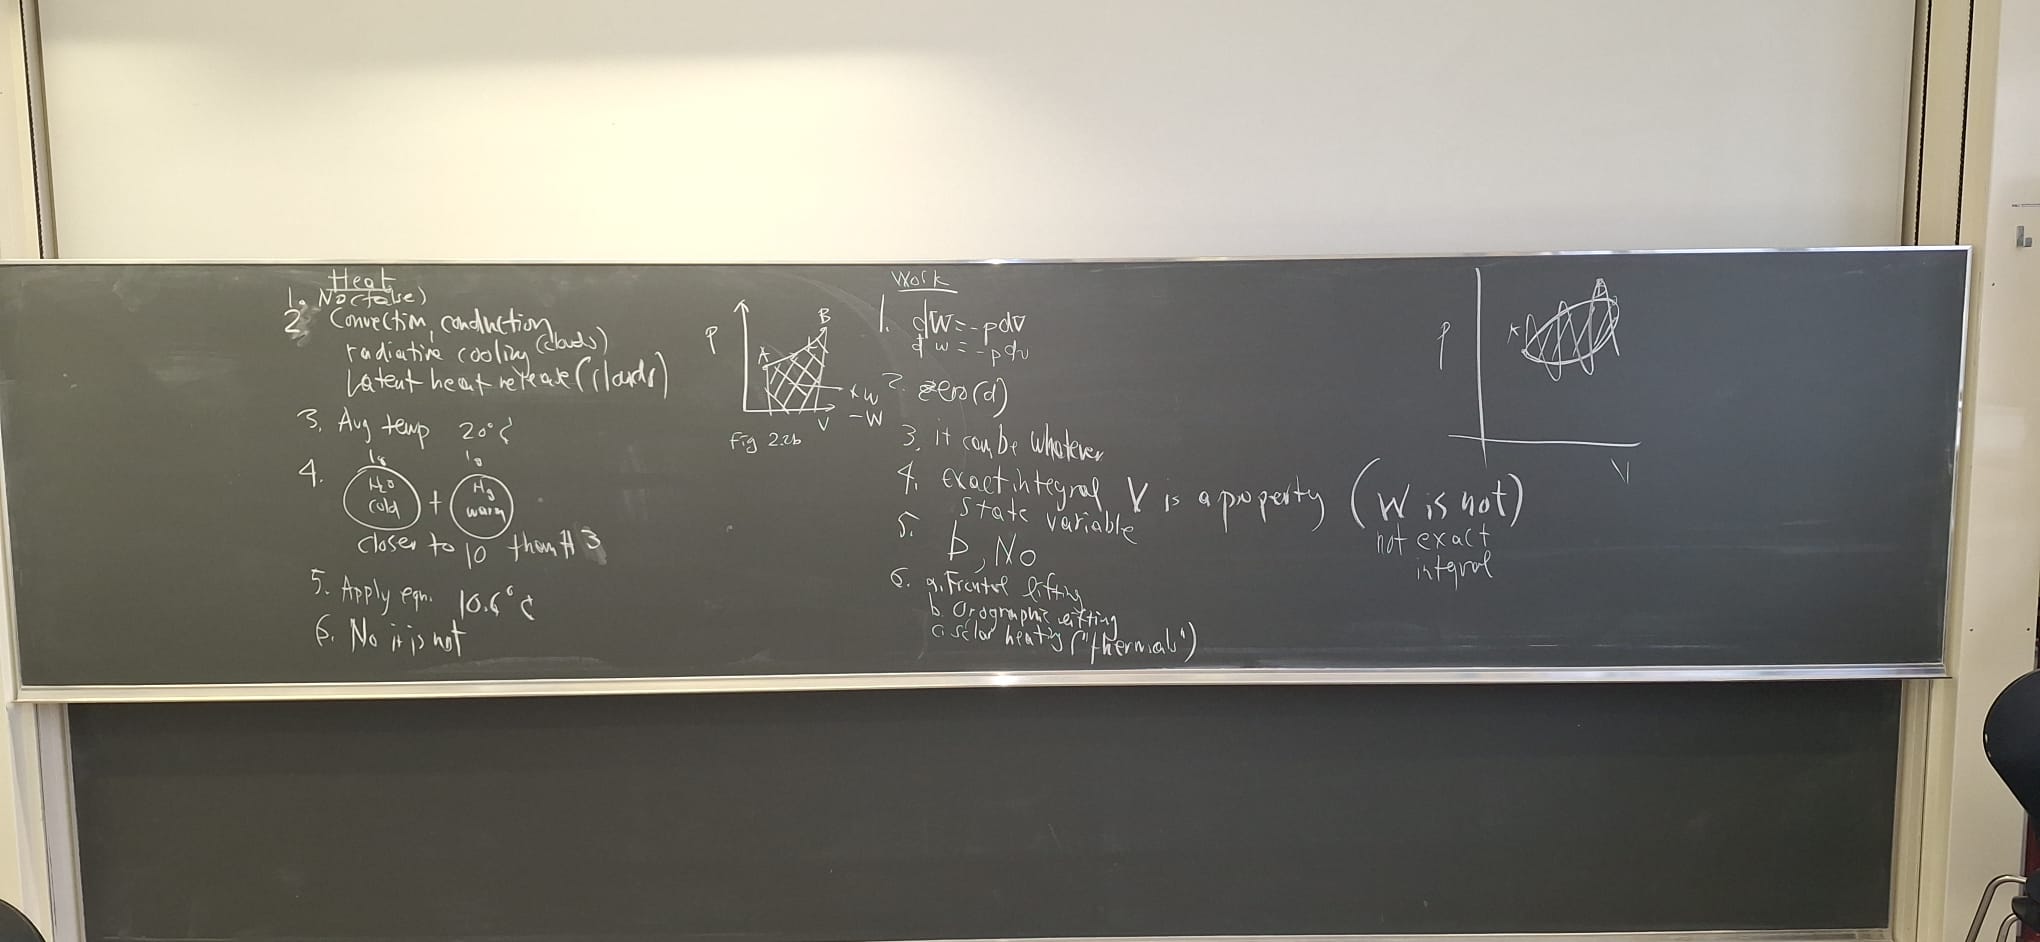 Heat
1. No (false)
2 Convection, conduction
radiative cooling (clouds)
Latent heat release (clouds)
3. Avg temp 20°C
4.
1g 1g
H₂O
cold
+
Hg
warm
closer to 10 than # 3
5. Apply eqn. 10.6°C
6. No it is not
P
A
B
V
+W
-W
Fig 2.2b
Work
1. dW = -pdV
dw = -pdv
2. zero (d)
3. it can be whatever
4. exact integral V is a property (W is not)
state variable
not exact
integral
5. b, No
6. a. Frontal lifting
b. Orographic lifting
c. solar heating ("thermals")
P
A
V